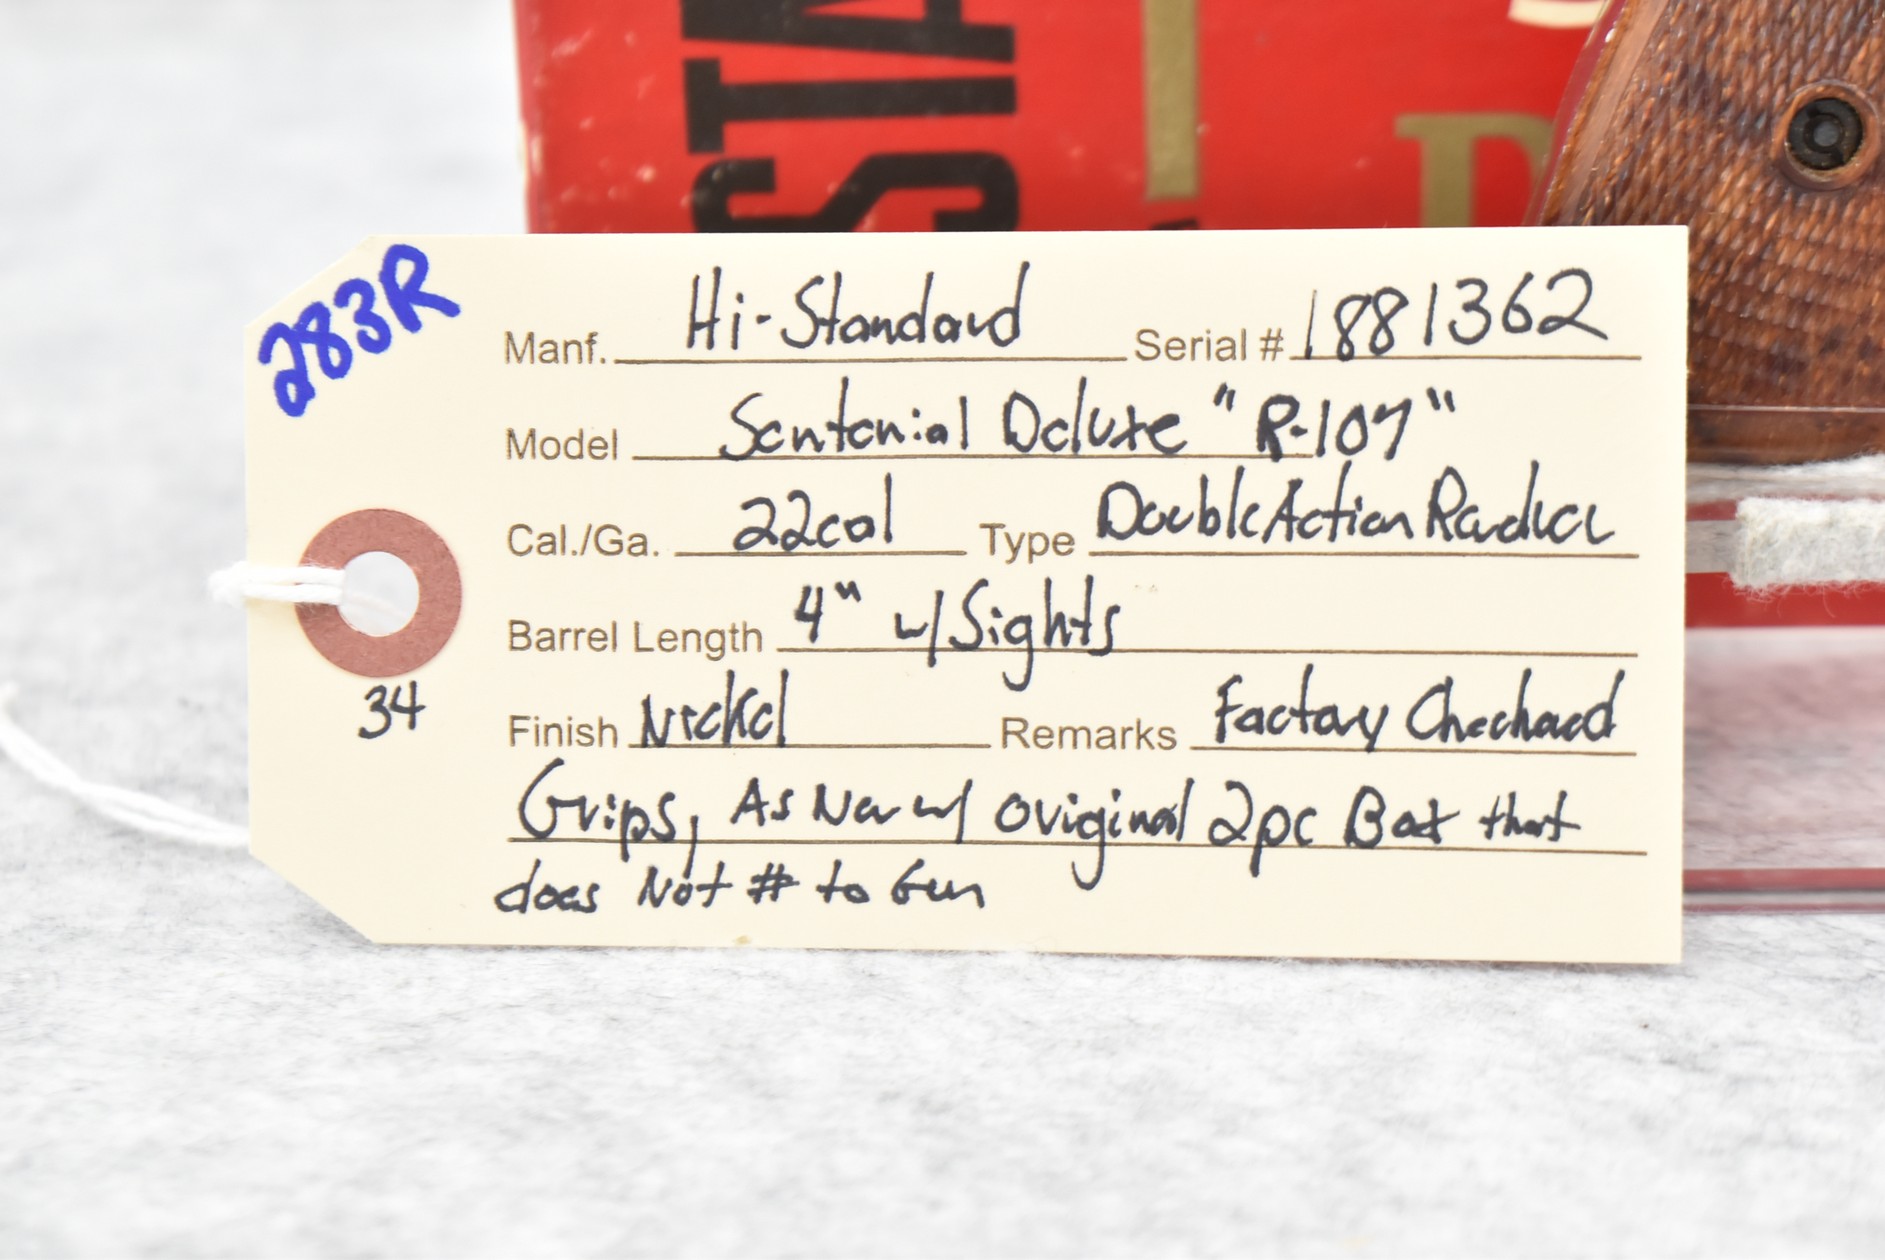 STA
D
283R
Manf. Hi-Standard Serial # 1881362
Model Sentenial Deluxe "R-107"
Cal./Ga. 22cal Type Double Action
Barrel Length 4" w/ Sights
Finish Nickel Remarks Factory Checkered
34
Grips, As New w/ original 2pc Box that
does Not # to Gun